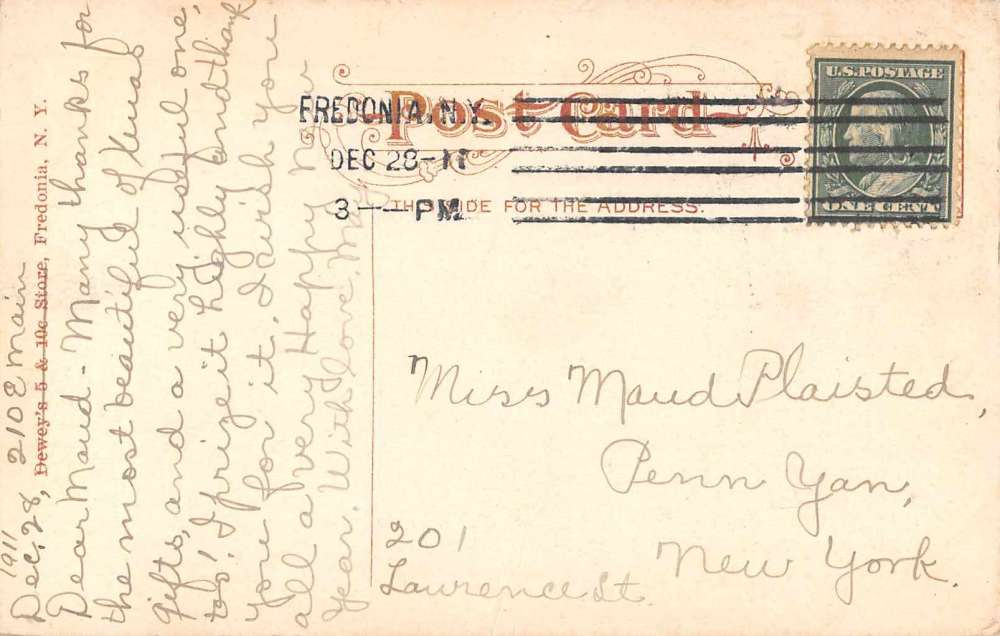 1911
Dec. 28, 210 E Main
Dewey's 5 & 10c Store, Fredonia, N. Y.
Dear Maud - Many thanks for
the most beautiful of Xmas
gifts, and a very useful one,
too! I prize it highly and thank
you for it. I wish you
all a very Happy New
Year. With love, May
Post Card
FREDONIA, N.Y.
DEC 28-11
3 - PM
THIS SIDE FOR THE ADDRESS.
U.S. POSTAGE
ONE CENT
Miss Maud Plaisted,
Penn Yan,
New York.
201
Lawrence St.